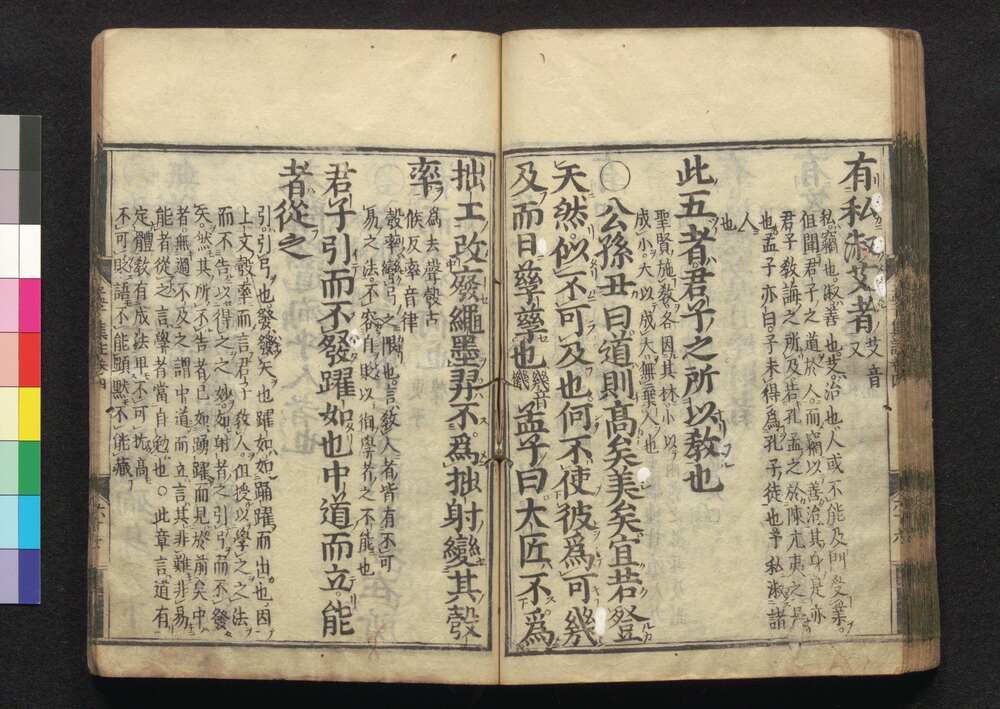 有私淑艾者 艾音
乂
私竊也淑善也艾治也人或不能及門受業
但聞君子之道於人而竊以善治其身是亦
君子教誨之所及若孔孟之於陳亢夷之是
也孟子亦曰予未得為孔子徒也予私淑諸
人
也
此五者君子之所以教也
聖賢施教各因其材小以
成小大以成大無棄人也
○公孫丑曰道則高矣美矣宜若登
天然似不可及也何不使彼爲可幾
及而日孳孳也 幾音機 孟子曰大匠不爲
拙工改廢繩墨羿不爲拙射變其彀
率 爲去聲彀古
候反率音律
彀率彎弓之限也言教人者皆有不可
易之法不容自貶以徇學者之不能也
君子引而不發躍如也中道而立能
者從之
引引弓也發發矢也躍如如踊躍而出也因
上文彀率而言君子教人但授以學之之法
而不告以得之之妙如射者之引弓而不發
矢然其所不告者已如踊躍而見於前矣中
者無過不及之謂中道而立言其非難非易
能者從之言學者當自勉也○此章言道有
定體教有成法卑不可抗高
不可貶語不能顯默不能藏